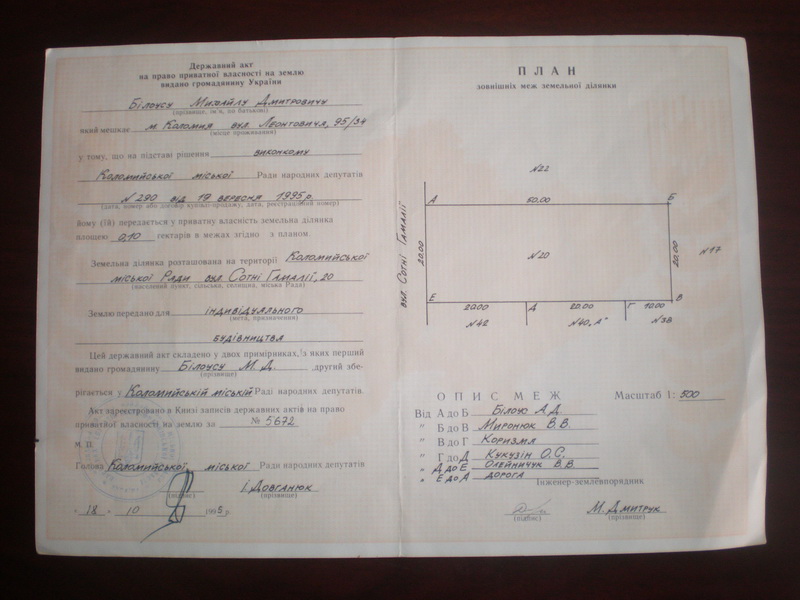 Державний акт
на право приватної власності на землю
видано громадянину України
Білоусу Михайлу Дмитровичу
(прізвище, ім'я, по батькові)
який мешкає м. Коломия вул. Леонтовича, 95/34
(місце проживання)
у тому, що на підставі рішення виконкому
Коломийської міської Ради народних депутатів
№ 290 від 19 вересня 1995 р.
(дата, номер або договір купівлі-продажу, дата, реєстраційний номер)
йому (їй) передається у приватну власність земельна ділянка
площею 0,10 гектарів в межах згідно з планом.
Земельна ділянка розташована на території Коломийської
міської Ради вул. Сотні Гамалії, 20
(населений пункт, сільська, селищна, міська Рада)
Землю передано для індивідуального
(мета, призначення)
будівництва
Цей державний акт складено у двох примірниках, з яких перший
видано громадянину Білоусу М. Д. , другий збе-
(прізвище)
рігається у Коломийській міській Раді народних депутатів.
Акт зареєстровано в Книзі записів державних актів на право
приватної власності на землю за № 5672
М. П.
Голова Коломийської міської Ради народних депутатів
І. Довганюк
(підпис) (прізвище)
" 18 " 10 1995 р.
ПЛАН
зовнішніх меж земельної ділянки
№22
А 50,00 Б
вул. Сотні Гамалії
20,00
№20
20,00
№17
Е 20.00 Д 20.00 Г 10.00 В
№42 №40 „А" №38
ОПИС МЕЖ Масштаб 1: 500
Від А до Б Білоус А.Д.
" Б до В Миронюк В.В.
" В до Г Коризма
" Г до Д Кукузін О.С.
" Д до Е Олейничук В.В.
" Е до А дорога
Інженер-землевпорядник
М. Дмитрук
(підпис) (прізвище)